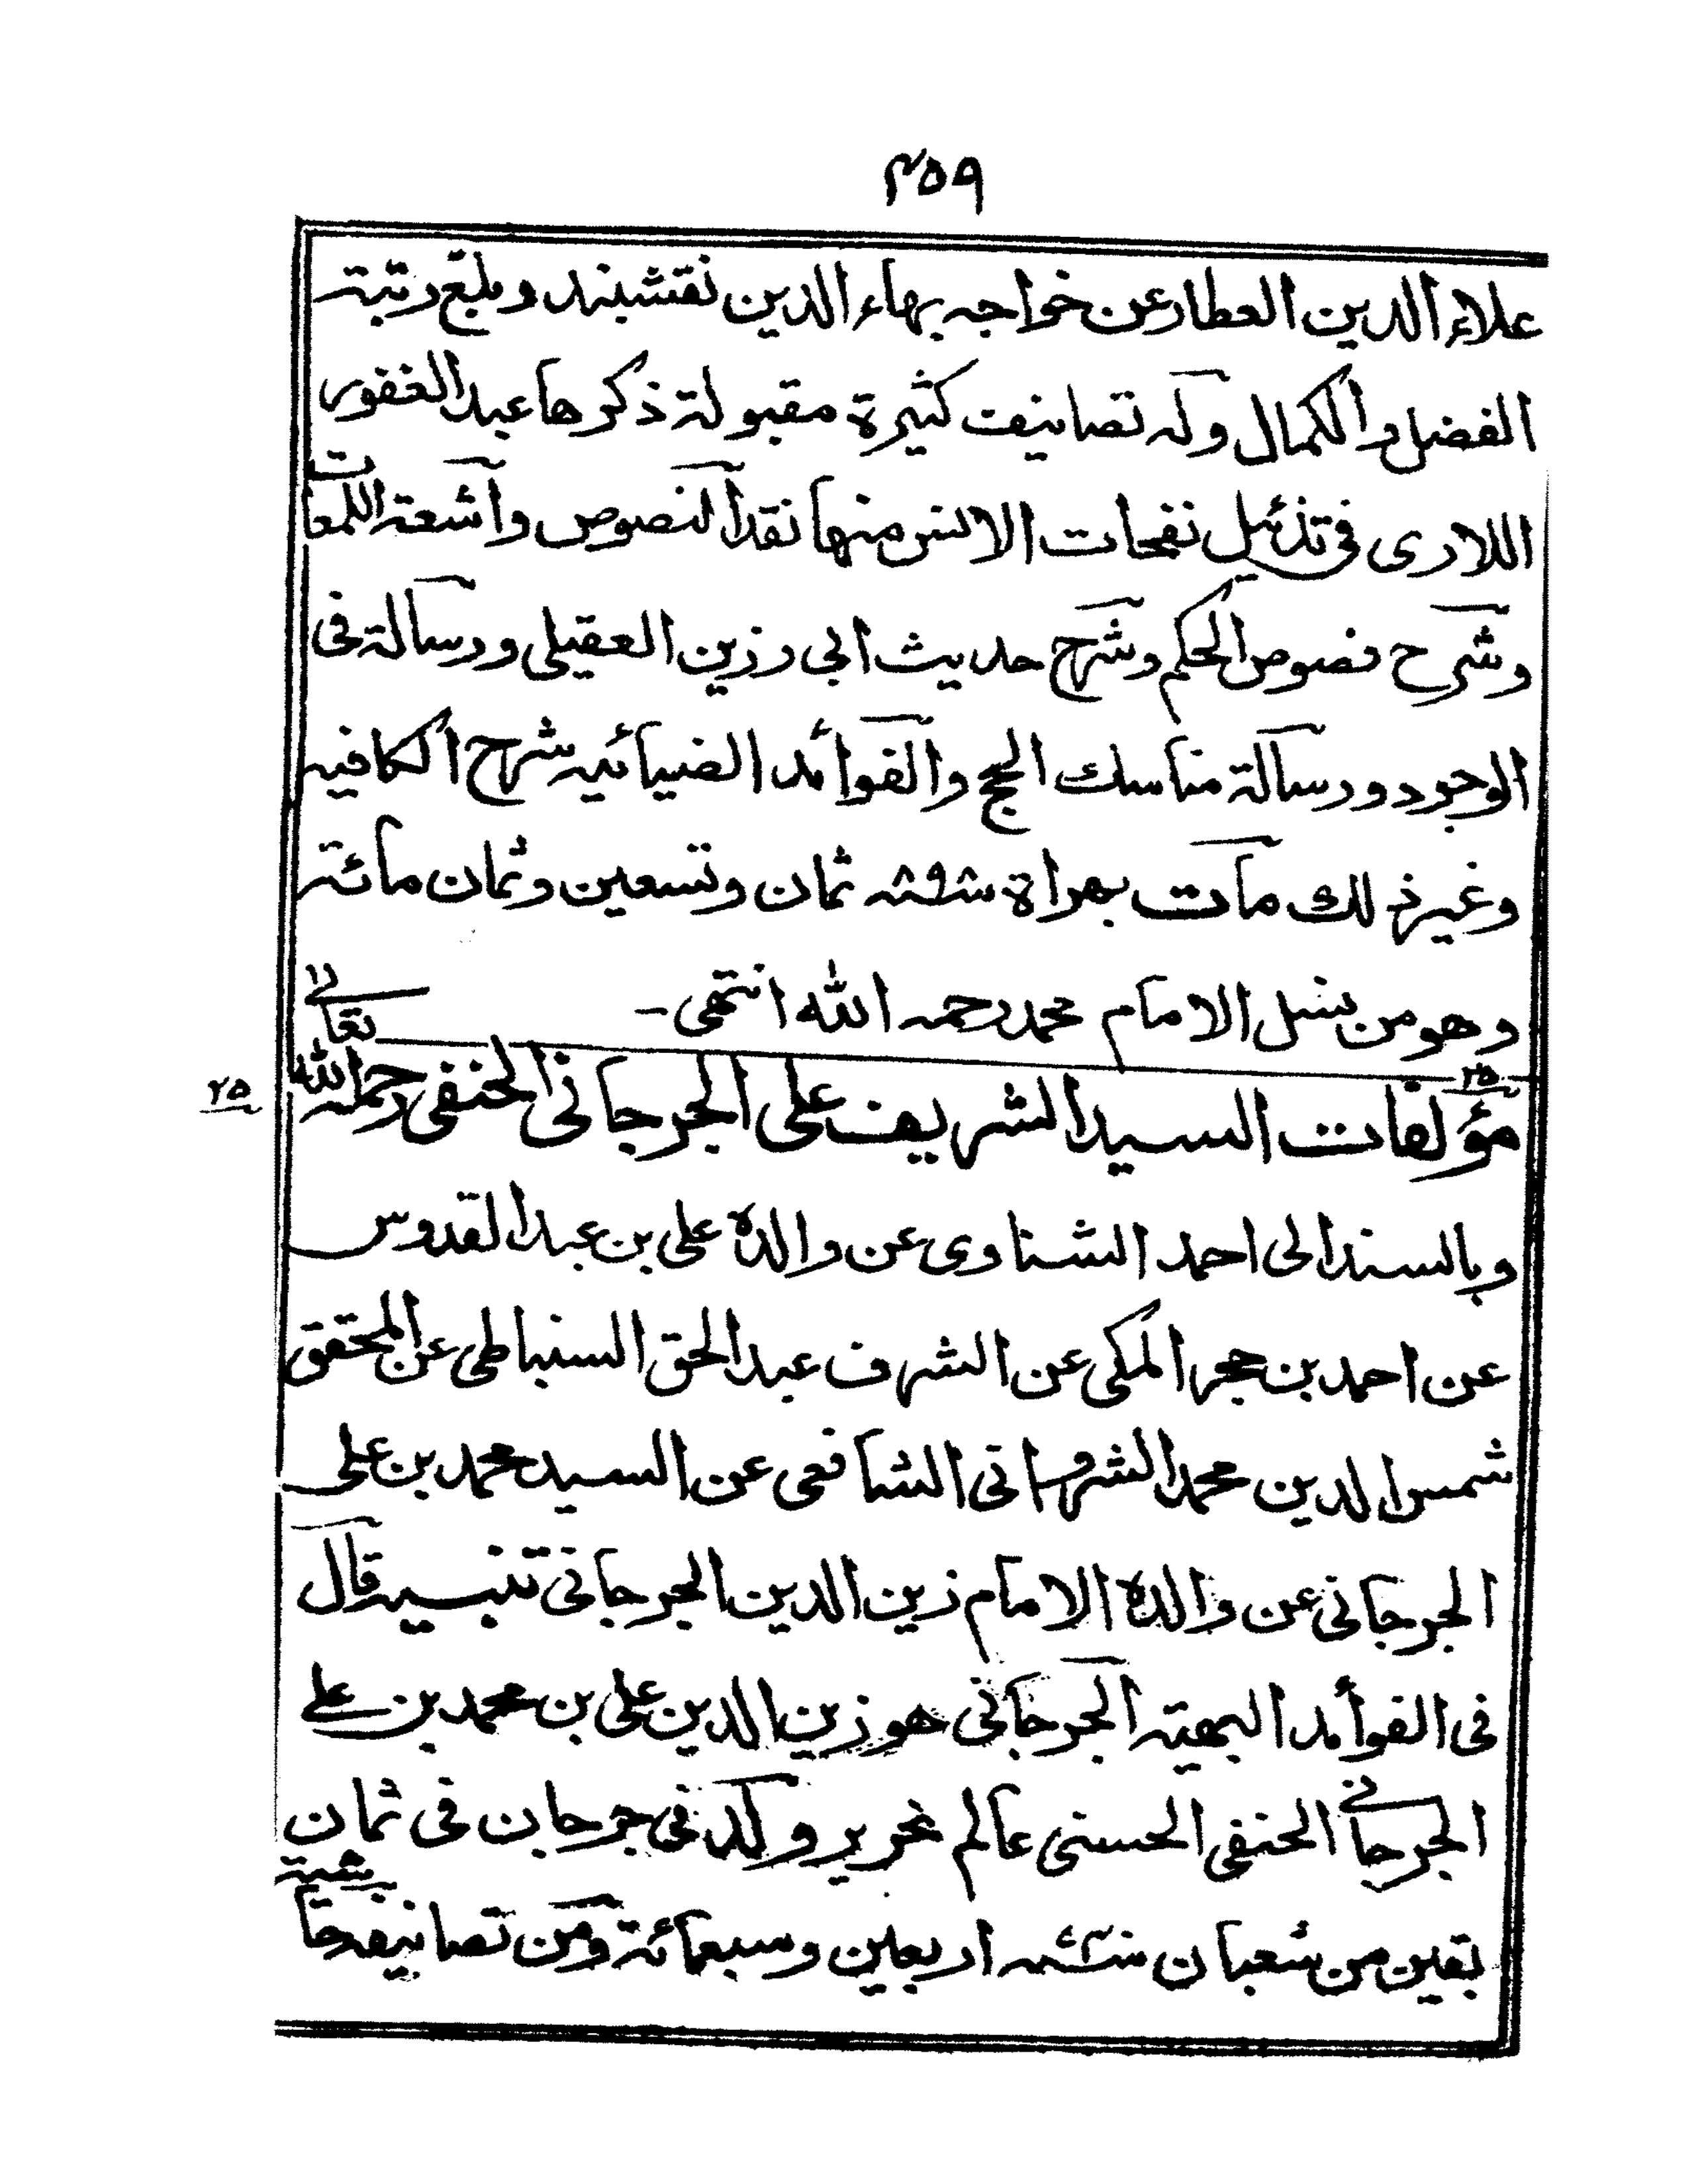 ٣٥٩
علاء الدين العطار عن خواجه بهاء الدين نقشبند وبلغ رتبة
الفضل والكمال وله تصانيف كثيرة مقبولة ذكرها عبد الغفور
اللارى فى تذئيل نفحات الانس منها نقد النصوص واشعة اللمعات
وشرح فصوص الحكم وشرح حديث ابى رزين العقيلى ورسالة فى
الوجود ورسالة مناسك الحج والفوائد الضيائيه شرح الكافيه
وغير ذلك مات بهراة ثمان وتسعين وثمان مائة
وهو من نسل الامام محمد رحمه الله انتهى -
٢٥
مؤلفات السيد الشريف على الجرجانى الحنفى رحمه الله تعالى
٢٥
وبالسند الى احمد الشناوى عن والده على بن عبد القدوس
عن احمد بن حجر المكى عن الشرف عبد الحق السنباطى عن المحقق
شمس الدين محمد الشروانى الشافعى عن السيد محمد بن على
الجرجانى عن والده الامام زين الدين الجرجانى تنبيه قال
فى الفوائد البهية الجرجانى هو زين الدين على بن محمد بن على
الجرجانى الحنفى الحسنى عالم نحرير ولد فى جرجان فى ثمان
بقين من شعبان سنة اربعين وسبعمائة ومن تصانيفه حاشية